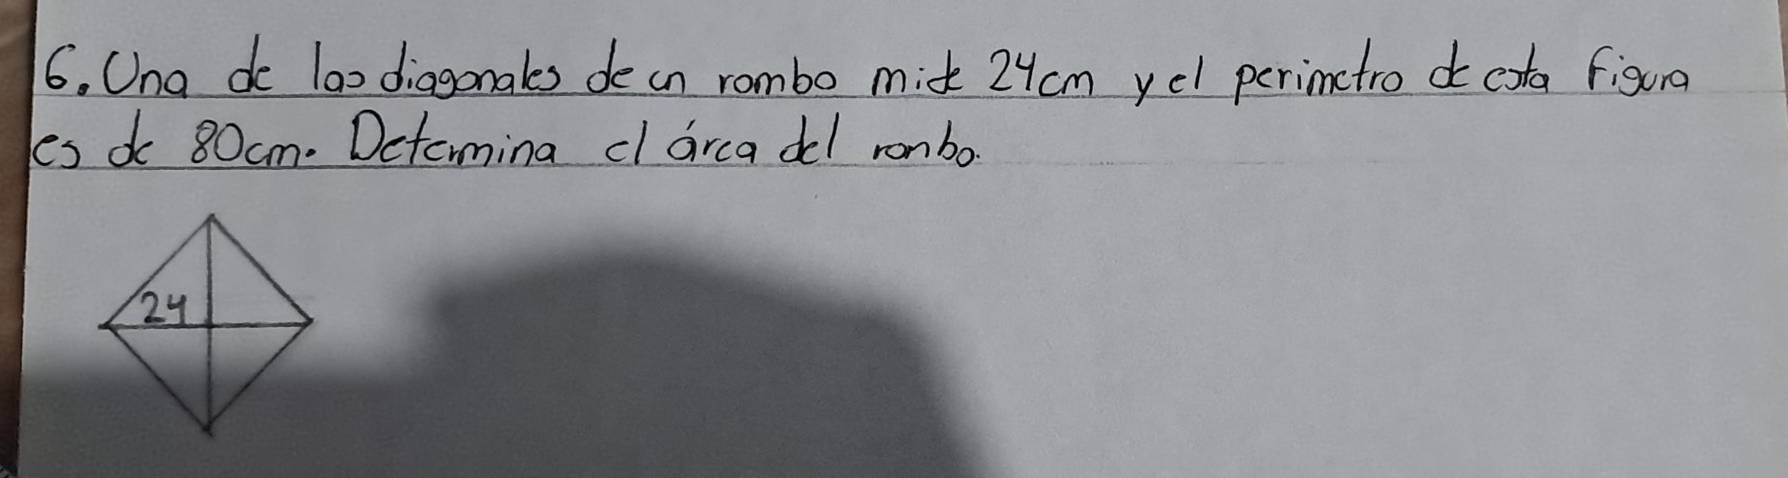 6. Una de las diagonales de un rombo mide 24cm y el perimetro de esta figura
es de 80cm. Determina el área del rombo.
24